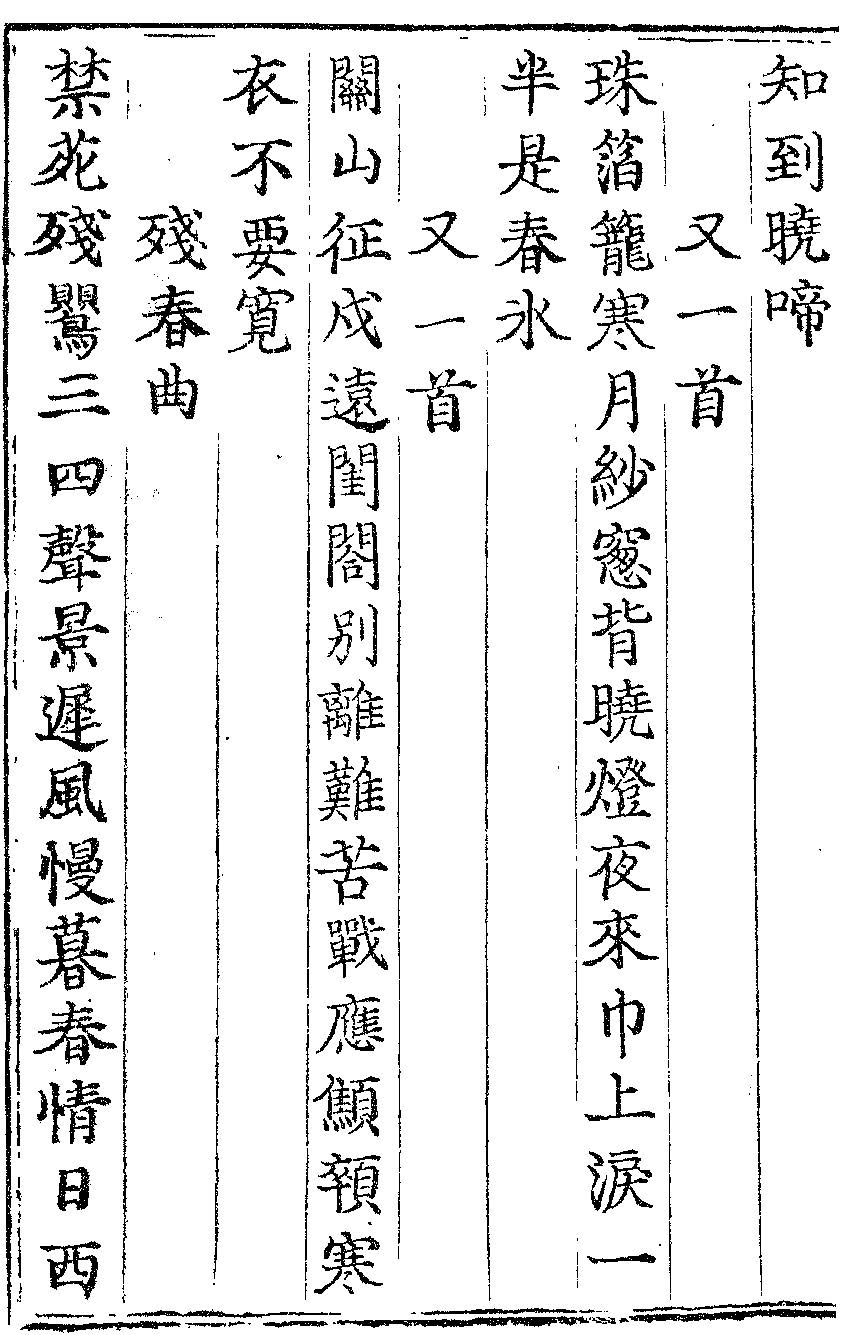 知到曉啼
又一首
珠箔籠寒月紗窻背曉燈夜來巾上淚一
半是春氷
又一首
關山征戍遠閨閤别離難苦戰應顦顇寒
衣不要寛
殘春曲
禁苑殘鸎三四聲景遲風慢暮春情日西